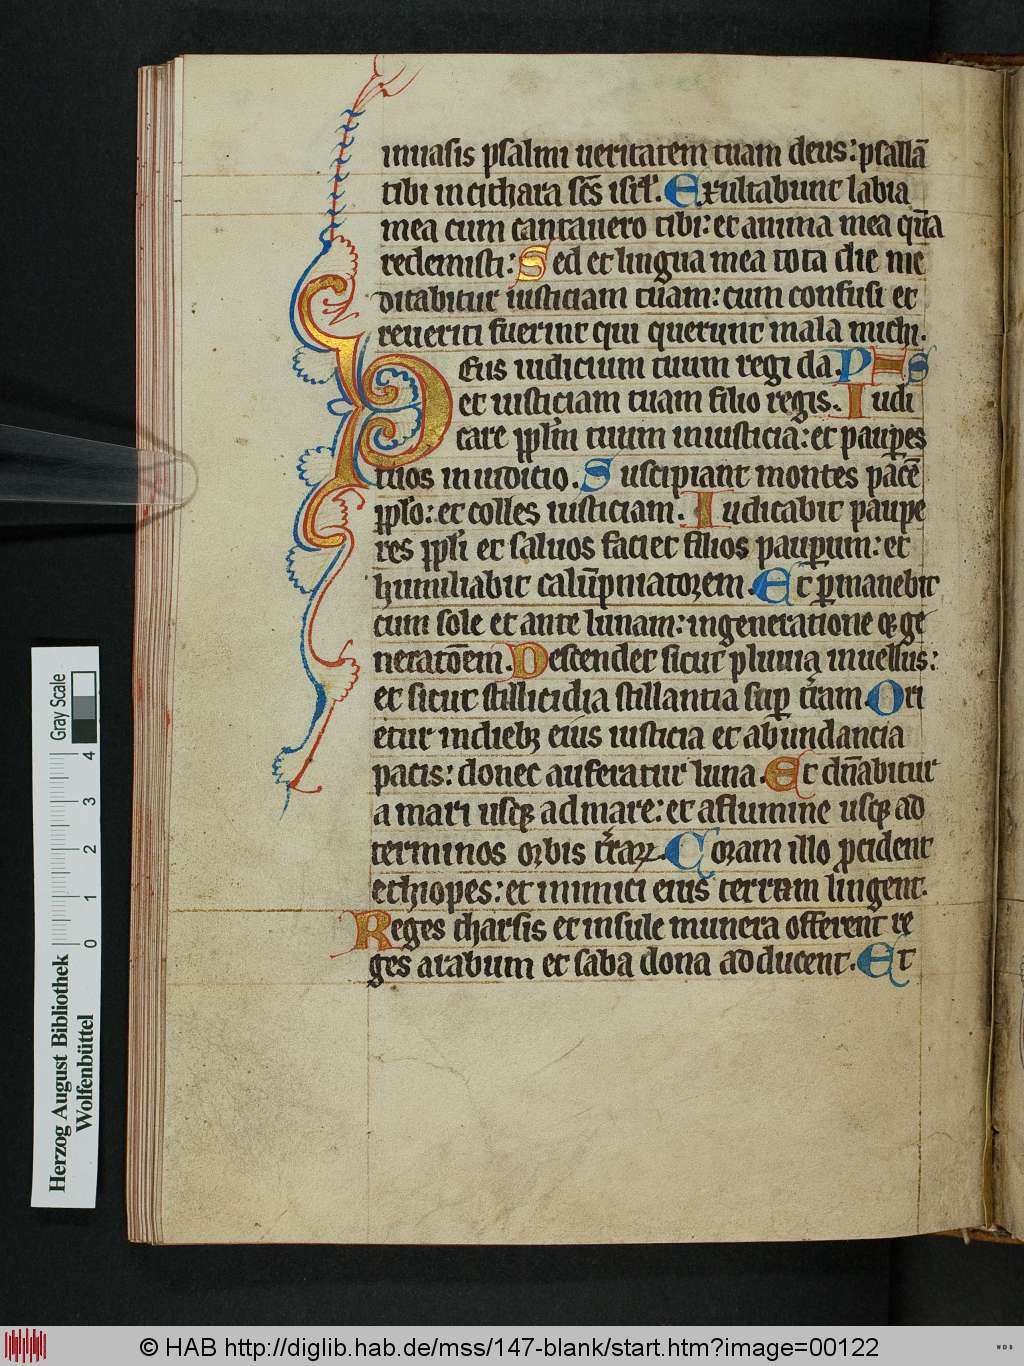 inuasis psalmi ueritatem tuam deus: psallā
tibi in cithara scs̄ isrl̄. Exultabunt labia
mea cum cantauero tibi: et anima mea quā
redemisti: Sed et lingua mea tota die me
ditabitur iusticiam tuam: cum confusi et
reueriti fuerint qui querunt mala michi.
Deus iudicium tuum regi da. PS
et iusticiam tuam filio regis. Iudi
care ppl̄m tuum iniusticia: et paup̄es
tuos in iudicio. Suscipiant montes pacē
ppl̄o: et colles iusticiam. Iudicabit paupe
res ppl̄i et saluos faciet filios paup̄um: et
humiliabit calūpniatorem. Et p̄manebit
cum sole et ante lunam: ingeneratione et ge
neratōem. Descendet sicut pluuia inuellus:
et sicut stillicidia stillantia sup̄ t̄ram. Ori
etur in dieb; eius iusticia et abundancia
pacis: donec auferatur luna. Et dn̄abitur
a mari usq; ad mare: et aflumine usq; ad
terminos orbis t̄raꝝ. Coram illo p̄cident
ethiopes: et inimici eius terram lingent.
Reges tharsis et insule munera offerent re
ges arabum et saba dona adducent. Et
Herzog August Bibliothek
Wolfenbüttel
0 1 2 3 4 Gray Scale
© HAB http://diglib.hab.de/mss/147-blank/start.htm?image=00122